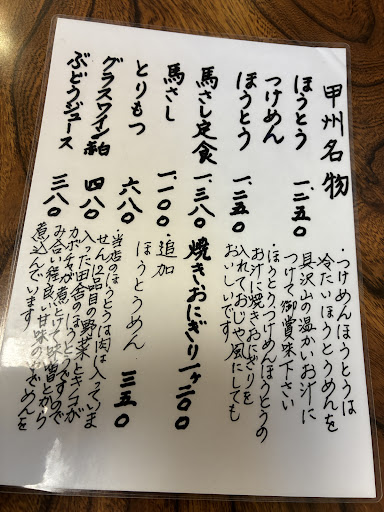 甲州名物
ほうとう 一、二五〇
つけめん
ほうとう 一、二五〇
馬さし定食 一、三八〇
馬さし 一、一〇〇
とりもつ 六八〇
グラスワイン 四八〇
ぶどうジュース 三八〇
・つけめんほうとうは
冷たいほうとうめんを
具沢山の温かいお汁に
つけて御賞味下さい
・ほうとうつけめんほうとうの
お汁に焼きおにぎりを
入れておじや風にしても
おいしいです。
焼きおにぎり一ヶ二〇〇
・追加
ほうとうめん 三五〇
・当店のほうとうは肉は入っていま
せん12品目の野菜とキノコが
入った田舎のほうとうです
カボチャが煮とけて味噌とから
み合い程良い甘味の
煮込んでいます